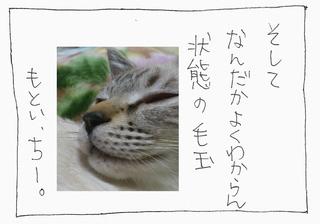 そして
なんだかよくわからん
状態の毛玉
もとい、ちー。